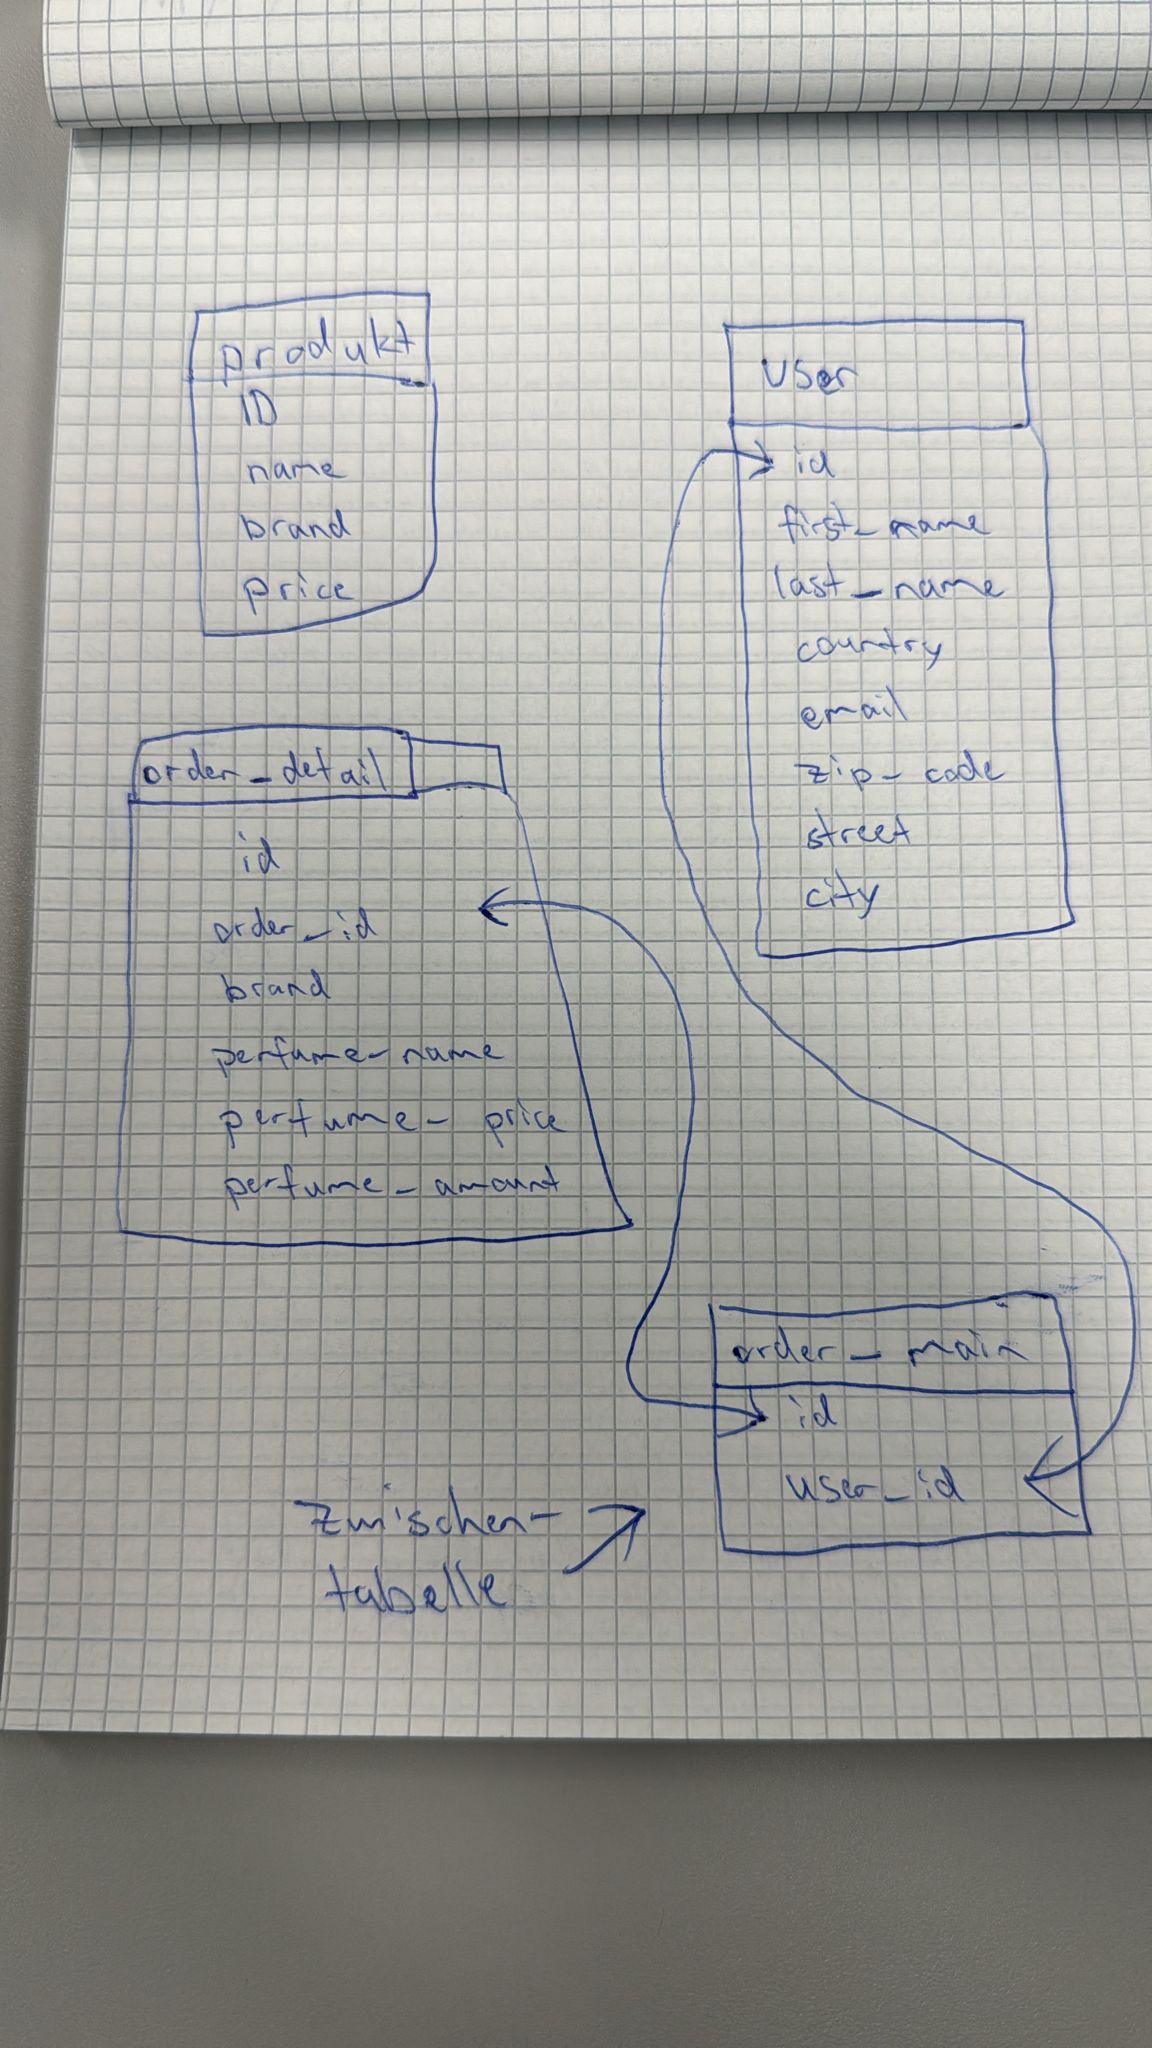 produkt
ID
name
brand
price
user
id
first_name
last_name
country
email
zip_code
street
city
order_detail
id
order_id
brand
perfume_name
perfume_price
perfume_amount
order_main
id
user_id
Zwischen-
tabelle